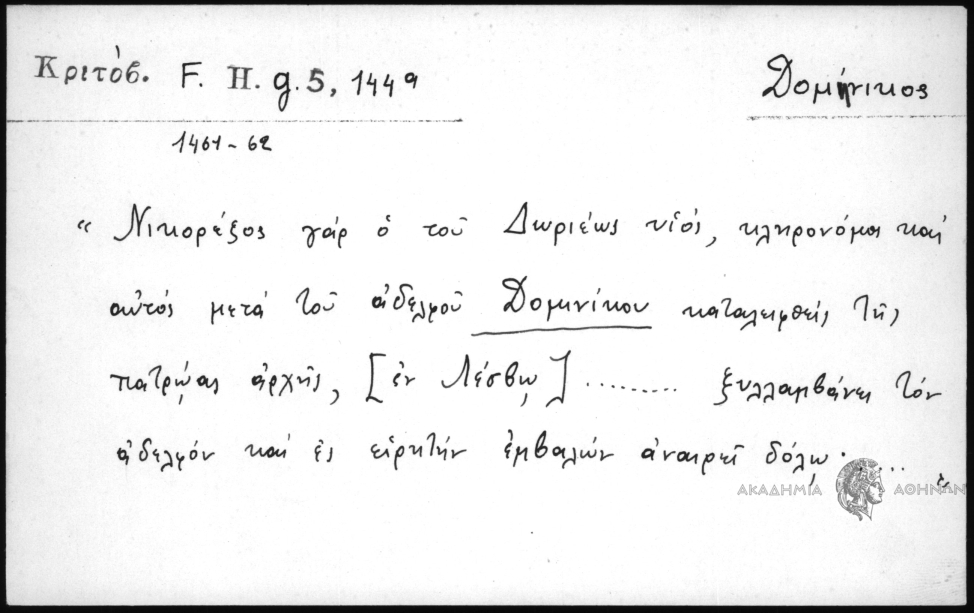 Κριτόβ. F. H. g. 5, 144α Δομήνικος
1461-62
“ Νικορέξος γάρ ὁ τοῦ Δωριέως υἱός, κληρονόμος καί
αὐτός μετά τοῦ ἀδελφοῦ Δομινίκου καταλειφθείς τῆς
πατρῴας ἀρχῆς, [ἐν Λέσβῳ] .......... ξυλλαμβάνει τόν
ἀδελφόν καί ἐς εἱρκτήν ἐμβαλών ἀναιρεῖ δόλῳ· ....
ΑΚΑΔΗΜΙΑ ΑΘΗΝΩΝ